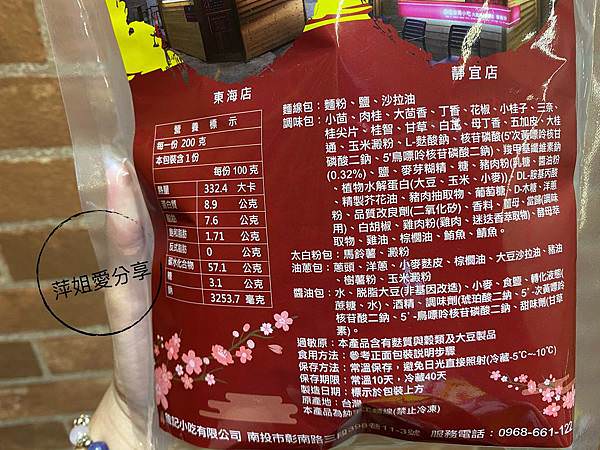 東海店
靜宜店
營養標示
每一份 200 克
本包裝含 1 份
每份 100 克
熱量 332.4 大卡
蛋白質 8.9 公克
脂肪 7.6 公克
飽和脂肪 1.71 公克
反式脂肪 0 公克
碳水化合物 57.1 公克
糖 3.1 公克
鈉 3253.7 毫克
麵線包：麵粉、鹽、沙拉油
調味包：小茴、肉桂、大茴香、丁香、花椒、小桂子、三奈、
桂尖片、桂智、甘草、白芷、母丁香、五加皮、大桂
通、玉米澱粉、L-麩酸鈉、核苷磷酸(5'次黃嘌呤核苷
磷酸二鈉、5'鳥嘌呤核苷磷酸二鈉)、羧甲基纖維素鈉
(0.32%)、鹽、麥芽糊精、糖、豬肉粉(乳糖、醬油粉
、植物水解蛋白(大豆、玉米、小麥)、DL-胺基丙酸
、精製芥花油、豬肉抽取物、葡萄糖、D-木糖、洋蔥
粉、品質改良劑(二氧化矽)、香料、薑母、當歸(調味
用)、白胡椒、雞肉粉(雞肉、迷迭香萃取物)、酵母萃
取物、雞油、棕櫚油、鮪魚、鯖魚。
太白粉包：馬鈴薯、澱粉
油蔥包：蔥頭、洋蔥、小麥麩皮、棕櫚油、大豆沙拉油、豬油
、樹薯粉、玉米澱粉
醬油包：水、脫脂大豆(非基因改造)、小麥、食鹽、轉化液糖(
蔗糖、水)、酒精、調味劑(琥珀酸二鈉、5'-次黃嘌呤
核苷酸二鈉、5'-鳥嘌呤核苷磷酸二鈉、甜味劑(甘草
素)。
過敏原：本產品含有麩質與穀類及大豆製品
食用方法：參考正面包裝說明步驟
保存方法：常溫保存，避免日光直接照射(冷藏-5℃~-10℃)
保存期限：常溫10天，冷藏40天
製造日期：標示於包裝上方
原產地：台灣
記小吃有限公司 南投市彰南路三段398巷11-3號 服務電話：0968-661-122
萍姐愛分享